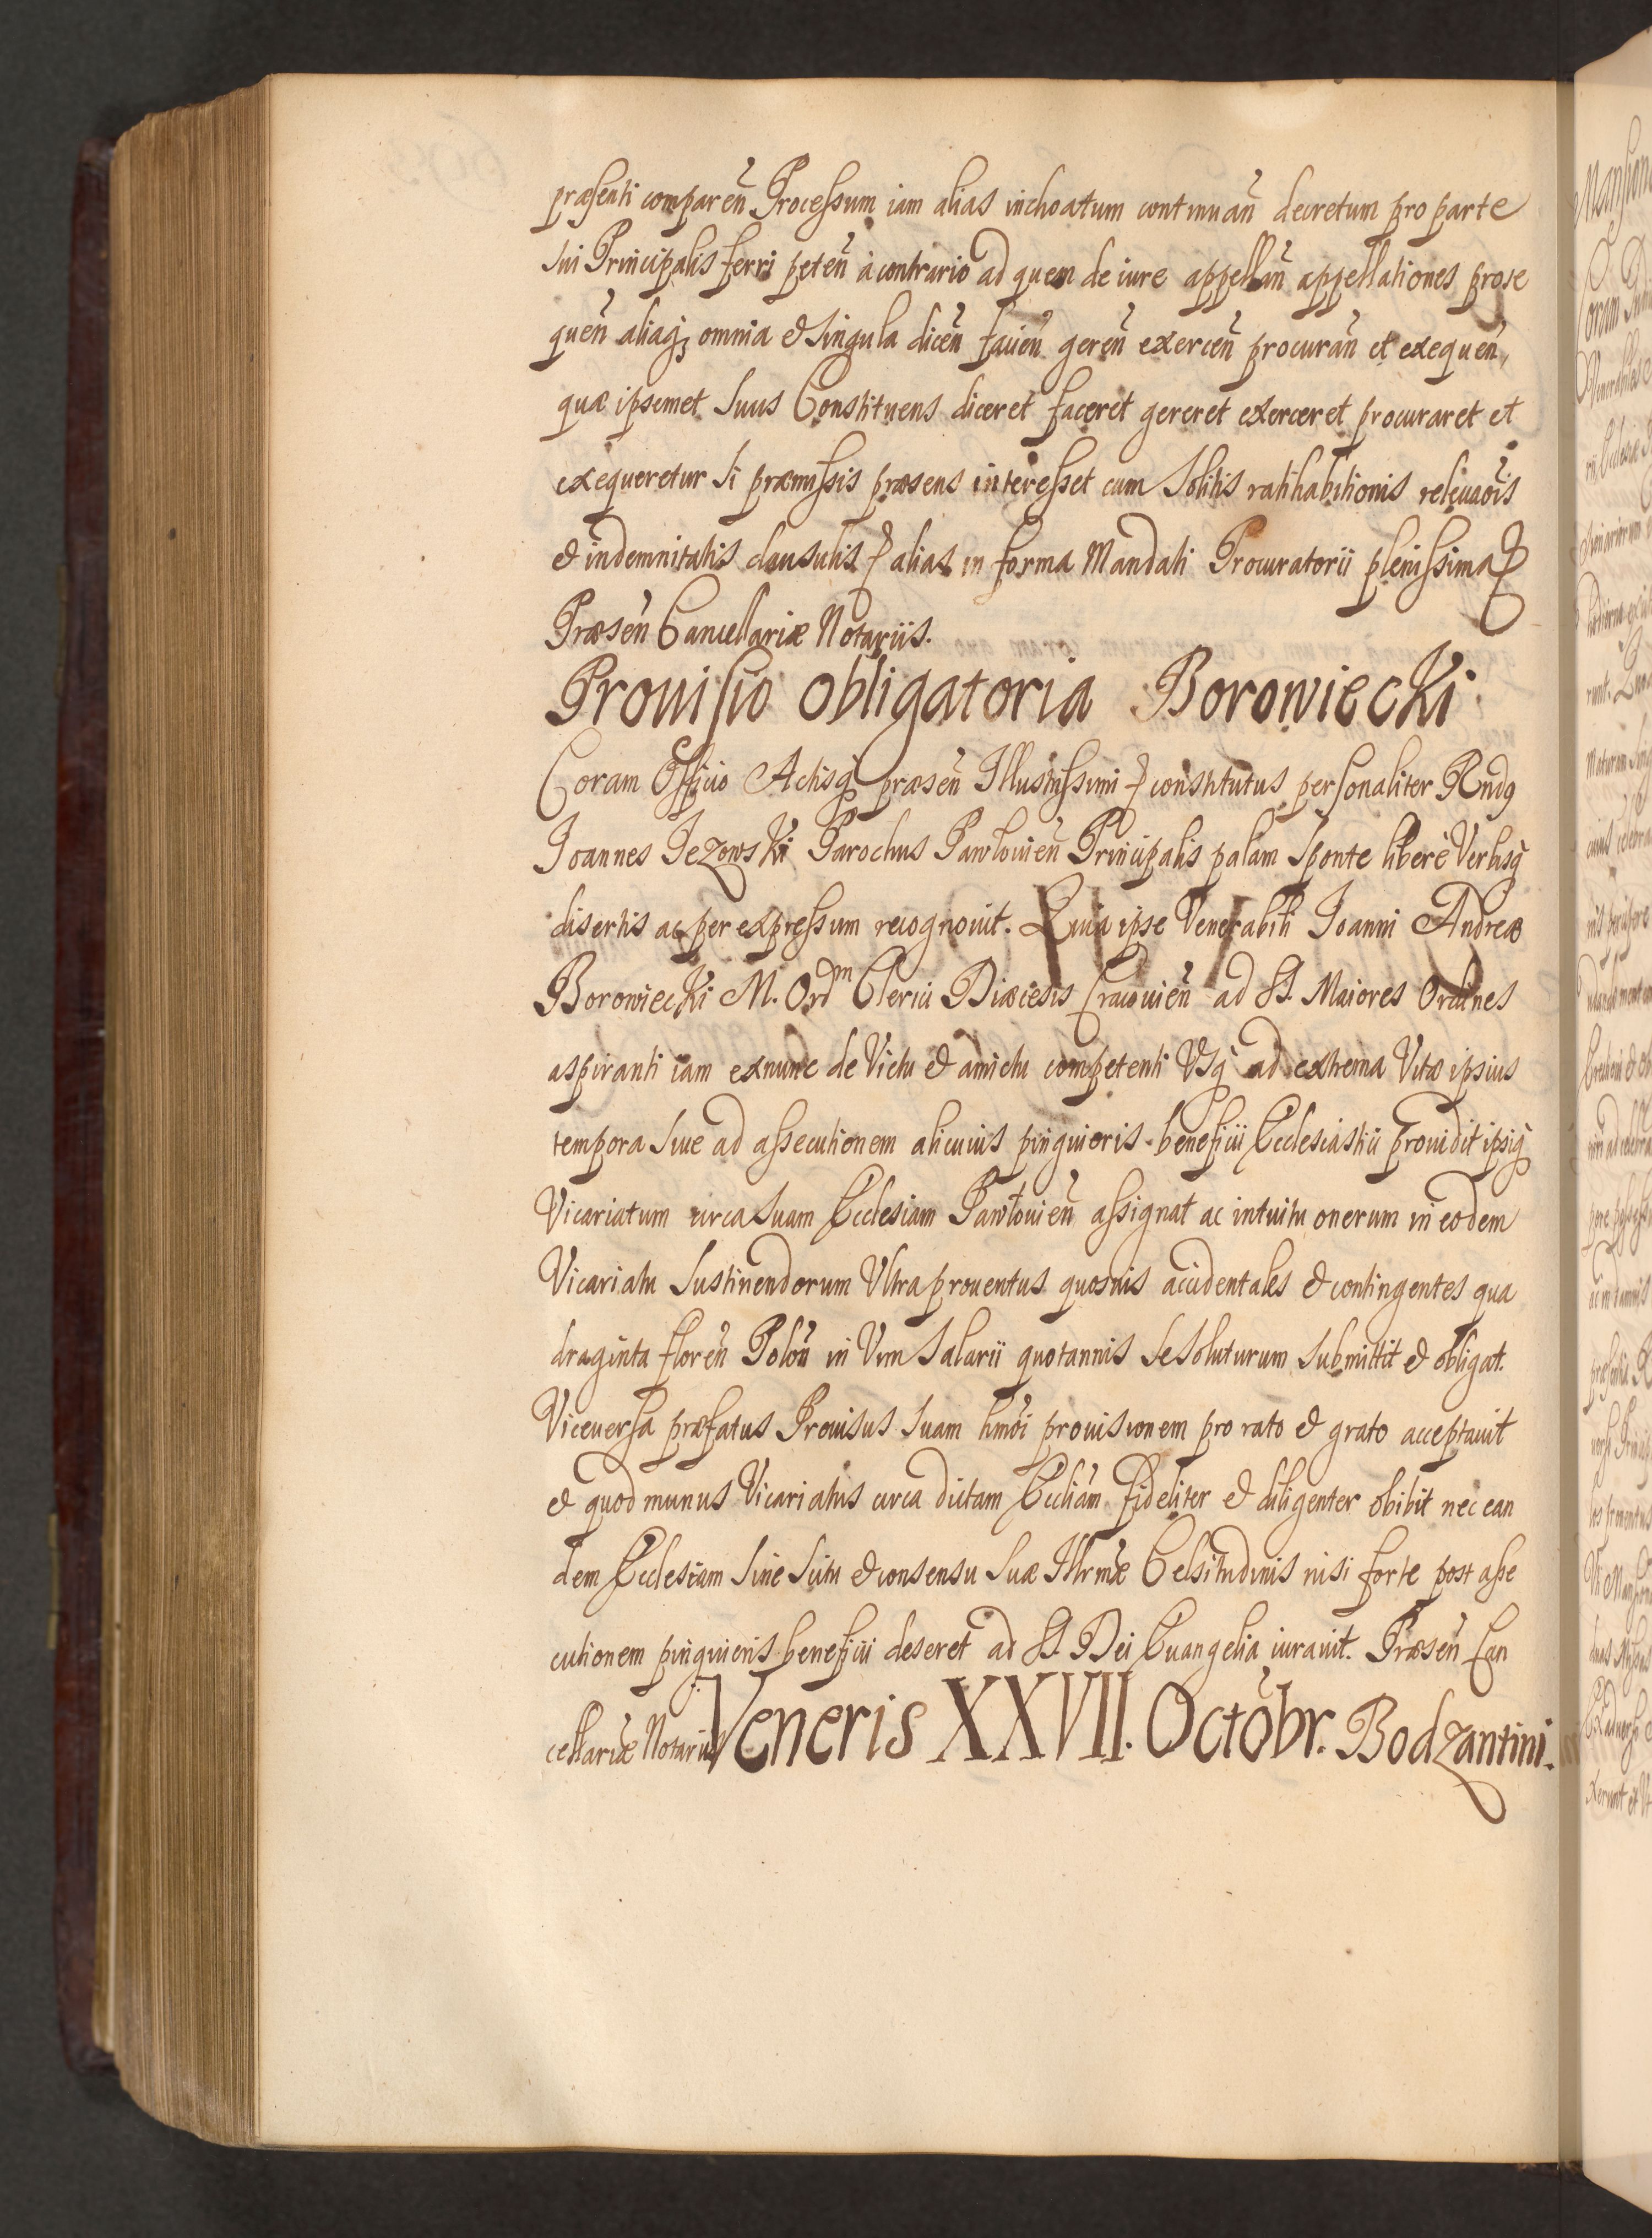 præsenti comparen̄ Processum iam alias inchoatum continuan̄ decretum pro parte
sui Principalis ferri peten̄ à contrario ad quem de iure appellan̄ appellationes prose
quen̄ aliaq; omnia et singula dicen̄ facien̄ geren̄ exercen̄ procuran̄ et exequen̄,
quæ ipsemet suus Constituens diceret faceret gereret exerceret procuraret et
exequeretur si præmissis præsens interesset cum solitis ratihabitionis releuaōis
et indemnitatis clausulis alias in forma Mandati Procuratorii plenissima
Præsen̄ Cancellariæ Notariis.
Prouisio obligatoria Borowiecki
Coram Officio Actisq; præsen̄ Illustrissimi constitutus personaliter Rndg
Ioannes Jezowski Parochus Pawłouien̄ Principalis palam sponte liberè Verbisq;
disertis ac per expressum recognouit. Quia ipse Venerabili Joanni Andreæ
Borowiecki M. Ordm Clerici Diœcesis Cracouien̄ ad SS. Maiores Ordines
aspiranti iam exnunc de Victu et amictu competenti Vsq; ad extrema Vitæ ipsius
tempora siue ad assecutionem alicuius pinguioris beneficii Ecclesiastici prouidit ipsiq;
Vicariatum circa suam Ecclesiam Pawłouien̄ assignat ac intuitu onerum in eodem
Vicariatu sustinendorum Vltra prouentus quosuis accidentales et contingentes qua
draginta floren̄ Polon̄ in Vim Salarii quotannis se soluturum submittit et obligat.
Viceuersa præfatus Prouisus suam hmōi prouisionem pro rato et grato acceptauit
et quod munus Vicariatus circa dictam Eccliam̄ fideliter et diligenter obibit nec ean
dem Ecclesiam sine scitu et consensu suæ Illrmæ Celsitudinis nisi forte post asse
cutionem pinguioris beneficii deseret ad SS. Dei Euangelia iurauit. Præsen̄ Can
cellariæ Notariis Veneris XXVII. Octobr. Bodzantini.